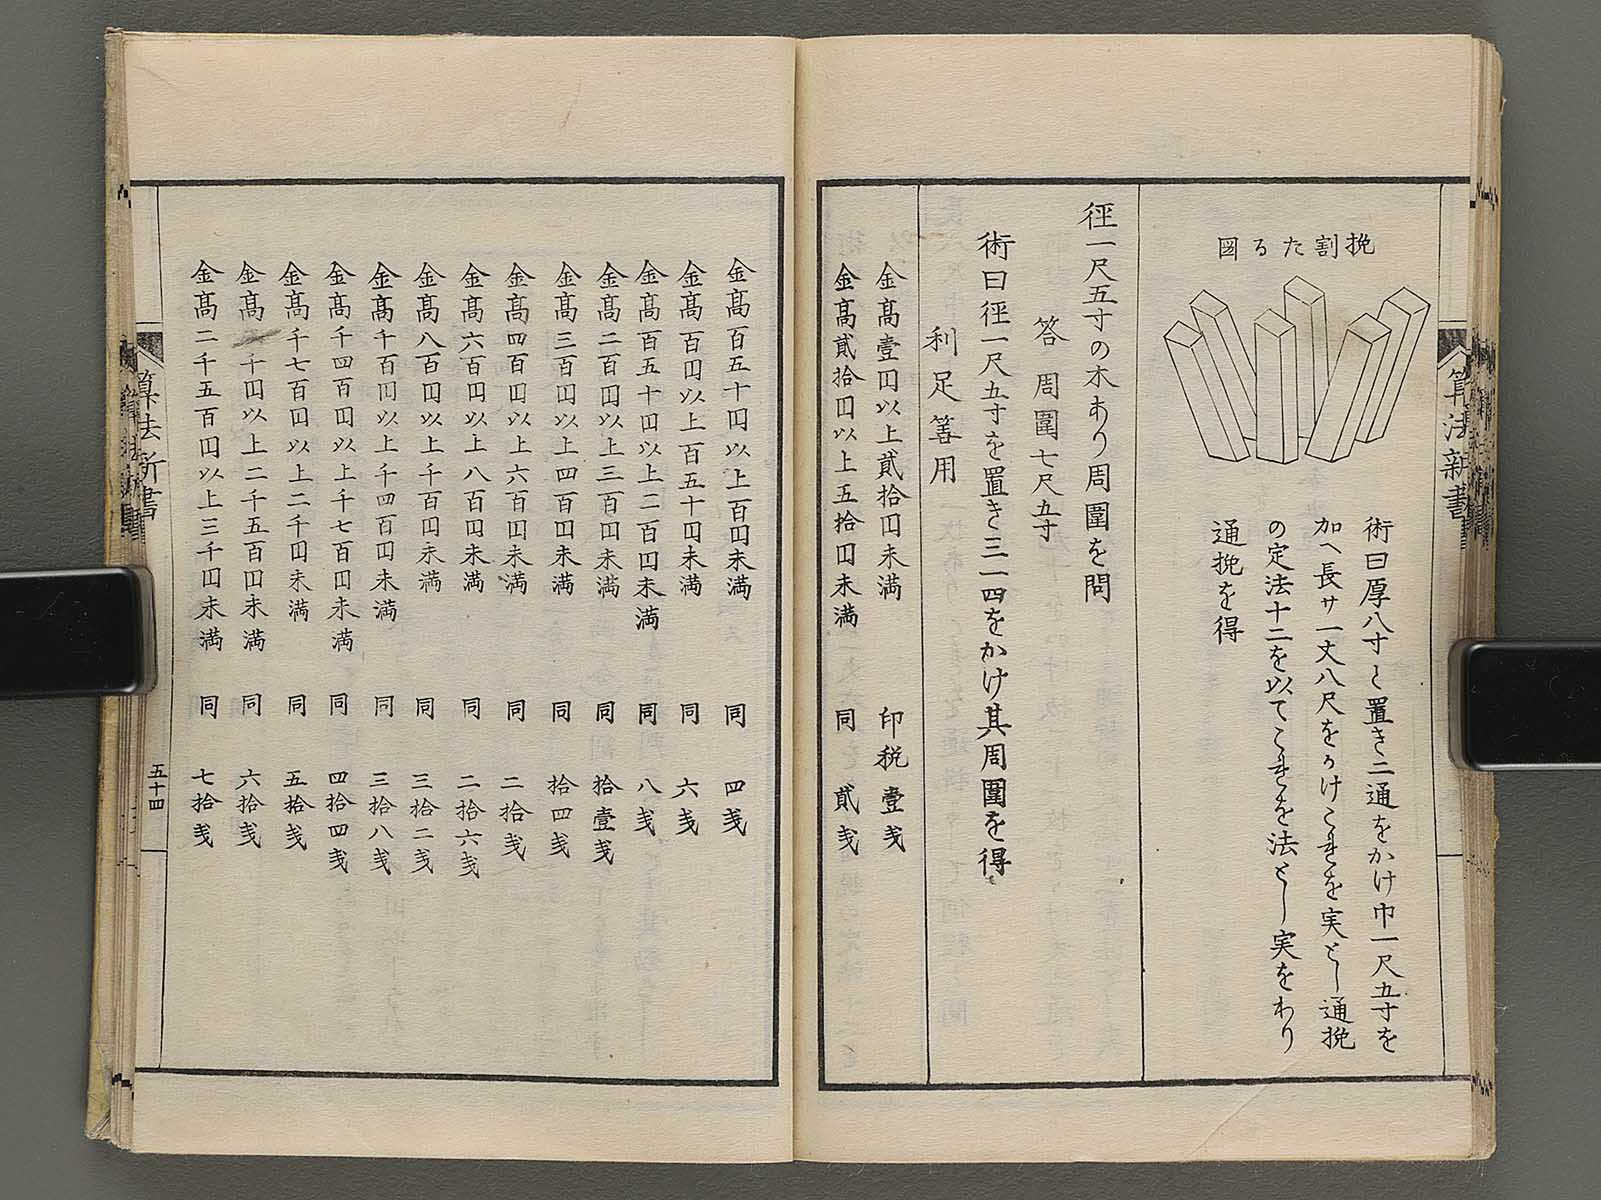 算法新書
挽割たる図
術曰厚八寸と置き二通をかけ巾一尺五寸を
加へ長サ一丈八尺をかけこれを実とし通挽
の定法十二を以てこれを法とし実をわり
通挽を得
径一尺五寸の木あり周圍を問
答 周圍七尺五寸
術曰径一尺五寸を置き三一四をかけ其周圍を得
利足筭用
金高壹円以上貳拾円未満 印税 壹戋
金高貳拾円以上五拾円未満 同 貳戋
金高百五十円以上百円未満 同 四戋
金高百円以上百五十円未満 同 六戋
金高百五十円以上二百円未満 同 八戋
金高二百円以上三百円未満 同 拾壹戋
金高三百円以上四百円未満 同 拾四戋
金高四百円以上六百円未満 同 二拾戋
金高六百円以上八百円未満 同 二拾六戋
金高八百円以上千百円未満 同 三拾二戋
金高千百円以上千四百円未満 同 三拾八戋
金高千四百円以上千七百円未満 同 四拾四戋
金高千七百円以上二千円未満 同 五拾戋
金高二千円以上二千五百円未満 同 六拾戋
金高二千五百円以上三千円未満 同 七拾戋
算法新書
五十四